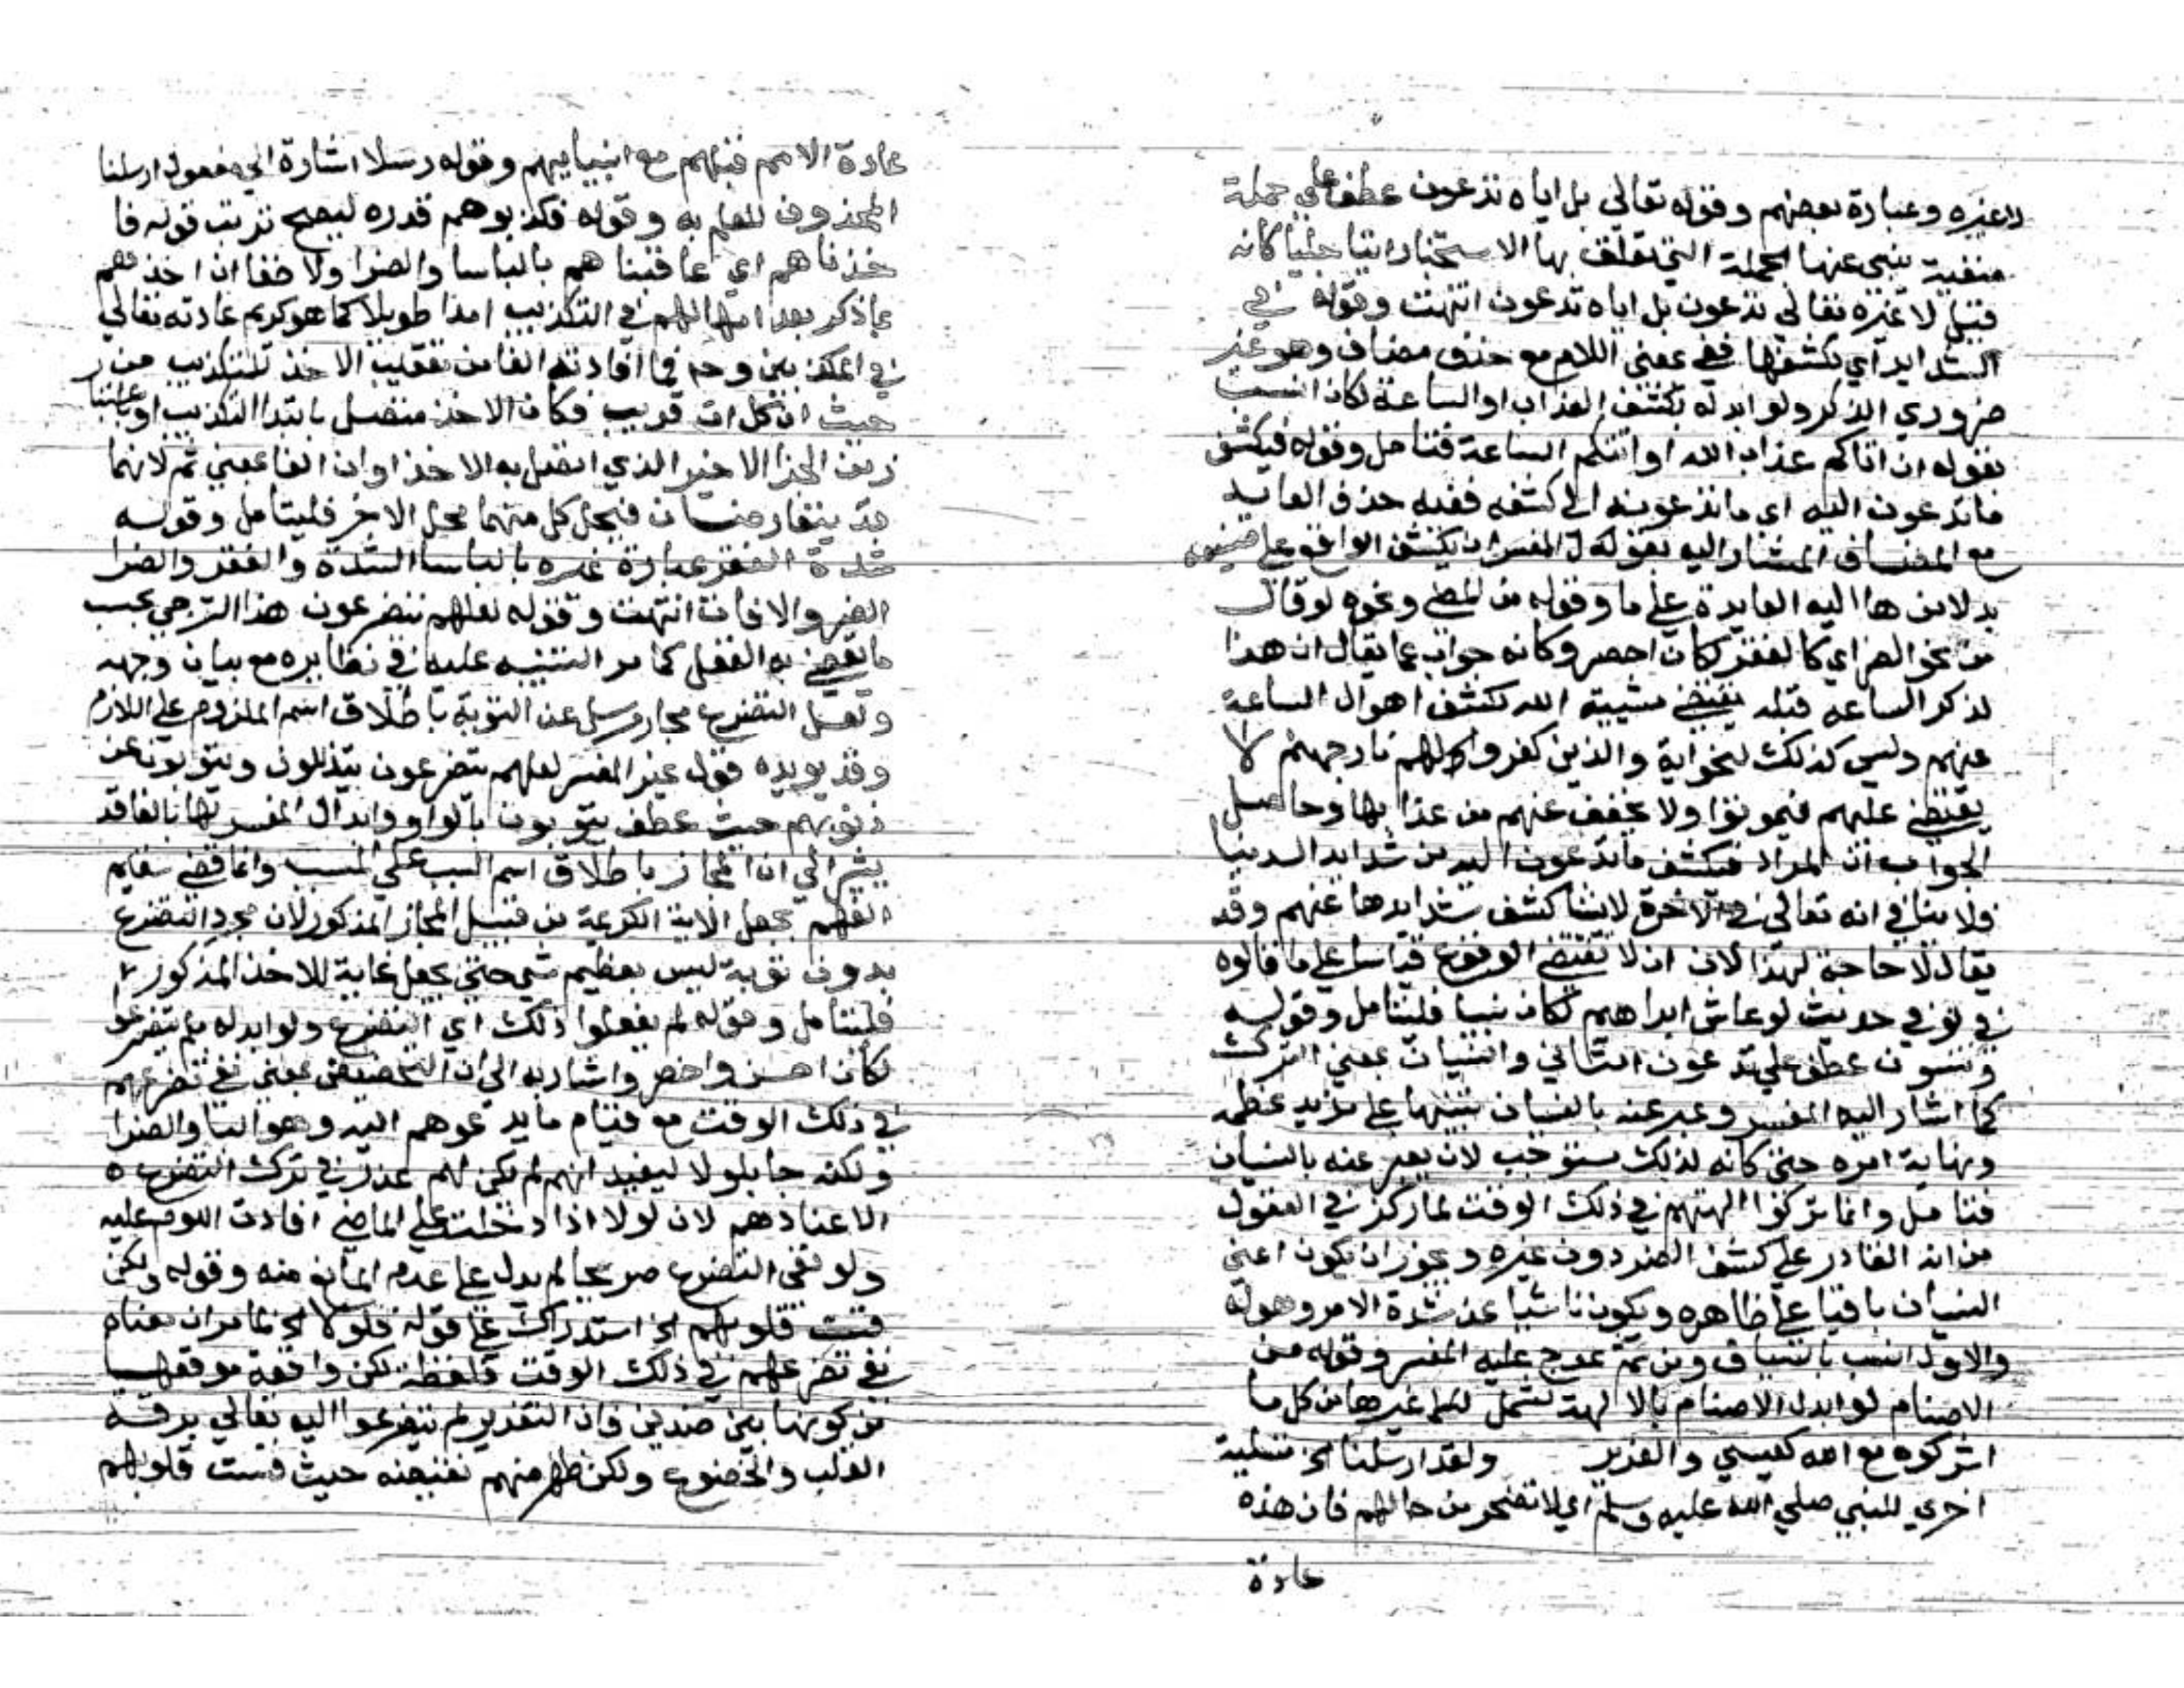 لاغيره وعبارة بعضهم وقوله تعالي بل اياه تدعون عطف علي جملة
منفية ينبي عنها الجملة التي تعلق بها الاستخبار انباجليا كانه
قيل لا غيره تعالي تدعون بل اياه تدعون انتهت وقوله في
الشدايد اي بكشفها ففي بمعني اللام مع حذف مضاف وهو غير
ضروري الذكر ولو ابدله بكشف العذاب او الساعة لكان انسب
بقوله ان اتاكم عذاب الله او اتتكم الساعة فتامل وقوله فيكشف
ماتدعون اليه اي ماتدعونه الي كشفه ففيه حذف العايد
مع المضاف المشار اليه بقوله المفسر ان يكشف الواقع علي
بدلا من ها اليه العايدة علي ما وقوله من الضر ونحوه لو قال
من نحو الضر اي كالفقر لكان احصر وكانه جواب عما يقال ان هذا
لذكر الساعه قبله يقتضي مشيية الله لكشف اهوال الساعة
عنهم وليس كذلك لنحو اية والذين كفروا لهم نار جهنم لا
يقضي عليهم فيموتوا ولا يخفف عنهم من عذابها وحاصل
الجواب ان المراد فيكشف ماتدعون اليه من شدايد الدنيا
ولا ينافي انه تعالي في الاخرة لايشا كشف شدايدها عنهم وقد
يقال لا حاجة لهذا لان ان لا تقتضي الوقوع قياسا علي ما قالوه
في لو في حديث لو عاش ابراهيم لكان نبيا فليتامل وقوله
وتنسون عطف علي تدعون الثاني والنسيان بمعني الترك
كما اشار اليه المفسر وعبر عنه بالنسيان تنبيها علي مزيد عظمه
ونهاية امره حتي كانه لذلك يستوجب لان يعبر عنه بالنسيان
فتامل وانما تركوا الهتهم في ذلك الوقت لما ركز في العقول
من انه القادر علي كشف الضر دون غيره ويجوز ان يكون اعني
النسيان باقيا علي ظاهره ويكون ناشيا عن شدة الامر وهوله
والاول انسب بالسياق ومن ثم عرج عليه المفسر وقوله من
الاصنام لو ابدل الاصنام بالالهة لشمل غيرها من كل ما
اشركوه مع الله كعيسي والعزير ولقد ارسلنا الخ تسلية
اخري للنبي صلي الله عليه وسلم اي لا تضجر من حالهم فان هذه
عادة
عادة الامم قبلهم مع انبياييهم وقوله رسلا اشارة الي مفعول ارسلنا
المحذوف للعلم به وقوله فكذبوهم قدره ليصح ترتب قوله فا
خذناهم اي عاقبناهم بالباسا والضرا ولا خفا ان اخذهم
بماذكر بعد امهالهم في التكذيب امدا طويلا كما هو كريم عادته تعالي
في المكذبين وحـ فما افادته الفا من تعقيب الاخذ للتكذيب من
حيث ان كل ات قريب فكان الاخذ متصل بابتدا التكذيب او باعتبا
ر الجزا الاخير الذي اتصل به الاخذ او ان الفا بمعني ثم لانهما
قد يتقارضان فيحل كل منهما محل الاخر فليتامل وقوله
شدة الفقر عبارة غيره بالباسا الشدة والفقر والضرا
الضر والافات انتهت وقوله لعلهم يتضرعون هذا الترجي بحسب
مايقضي به العقل كما مر التنبيه عليه في نظايره مع بيان وجهه
ولعل التضرع مجاز مرسل عن التوبة باطلاق اسم الملزوم علي اللازم
وقد يويده قول غير المفسر لعلهم يتضرعون يتذللون ويتوبون عن
ذنوبهم حيث عطف يتوبون بالواو وابدال المفسر لها بالفا قد
يشير الي ان المجاز باطلاق اسم السبب علي المسبب وانما قضي سقايم
الفهم بجعل الاية الكريمة من قبيل المجاز المذكور لان مجرد التضرع
بدون توبة ليس بعظيم شي حتي يجعل غاية للاخذ المذكور
فليتامل وقوله لم يفعلوا ذلك اي التضرع ولو ابدله بلم يتضرعوا
لكان احسن واخصر واشار به الي ان التحضيض بمعني نفي تضرعهم
في ذلك الوقت مع قيام مايدعوهم اليه وهو الباسا والضرا
ولكنه جا بلولا ليفيد انهم لم يكن لهم عذر في ترك التضرع
الا عنادهم لان لولا اذا دخلت علي الماضي افادت اللوم عليه
ولو نفي التضرع صريحا لم يدل علي عدم المانع منه وقوله ولكن
قست قلوبهم الخ استدراك علي قوله فلولا الخ لما مر ان معناه
نفي تضرعهم في ذلك الوقت فلفظة لكن واقعة موقعها
من كونها بين ضدين فان التقدير لم يتضرعوا اليه تعالي برقة
القلب والخضوع ولكن ظهر منهم نقيضه حيث قست قلوبهم